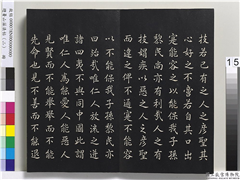 技若己有之人之彥聖其
心好之不啻若自其口出
寔能容之以能保我子孫
黎民尚亦有利哉人之有
技媢疾以惡之人之彥聖
而違之俾不通寔不能容
以不能保我子孫黎民亦
曰殆哉唯仁人放流之迸
諸四夷不與同中國此謂
唯仁人為能愛人能惡人
見賢而不能舉舉而不能
先命也見不善而不能退
15